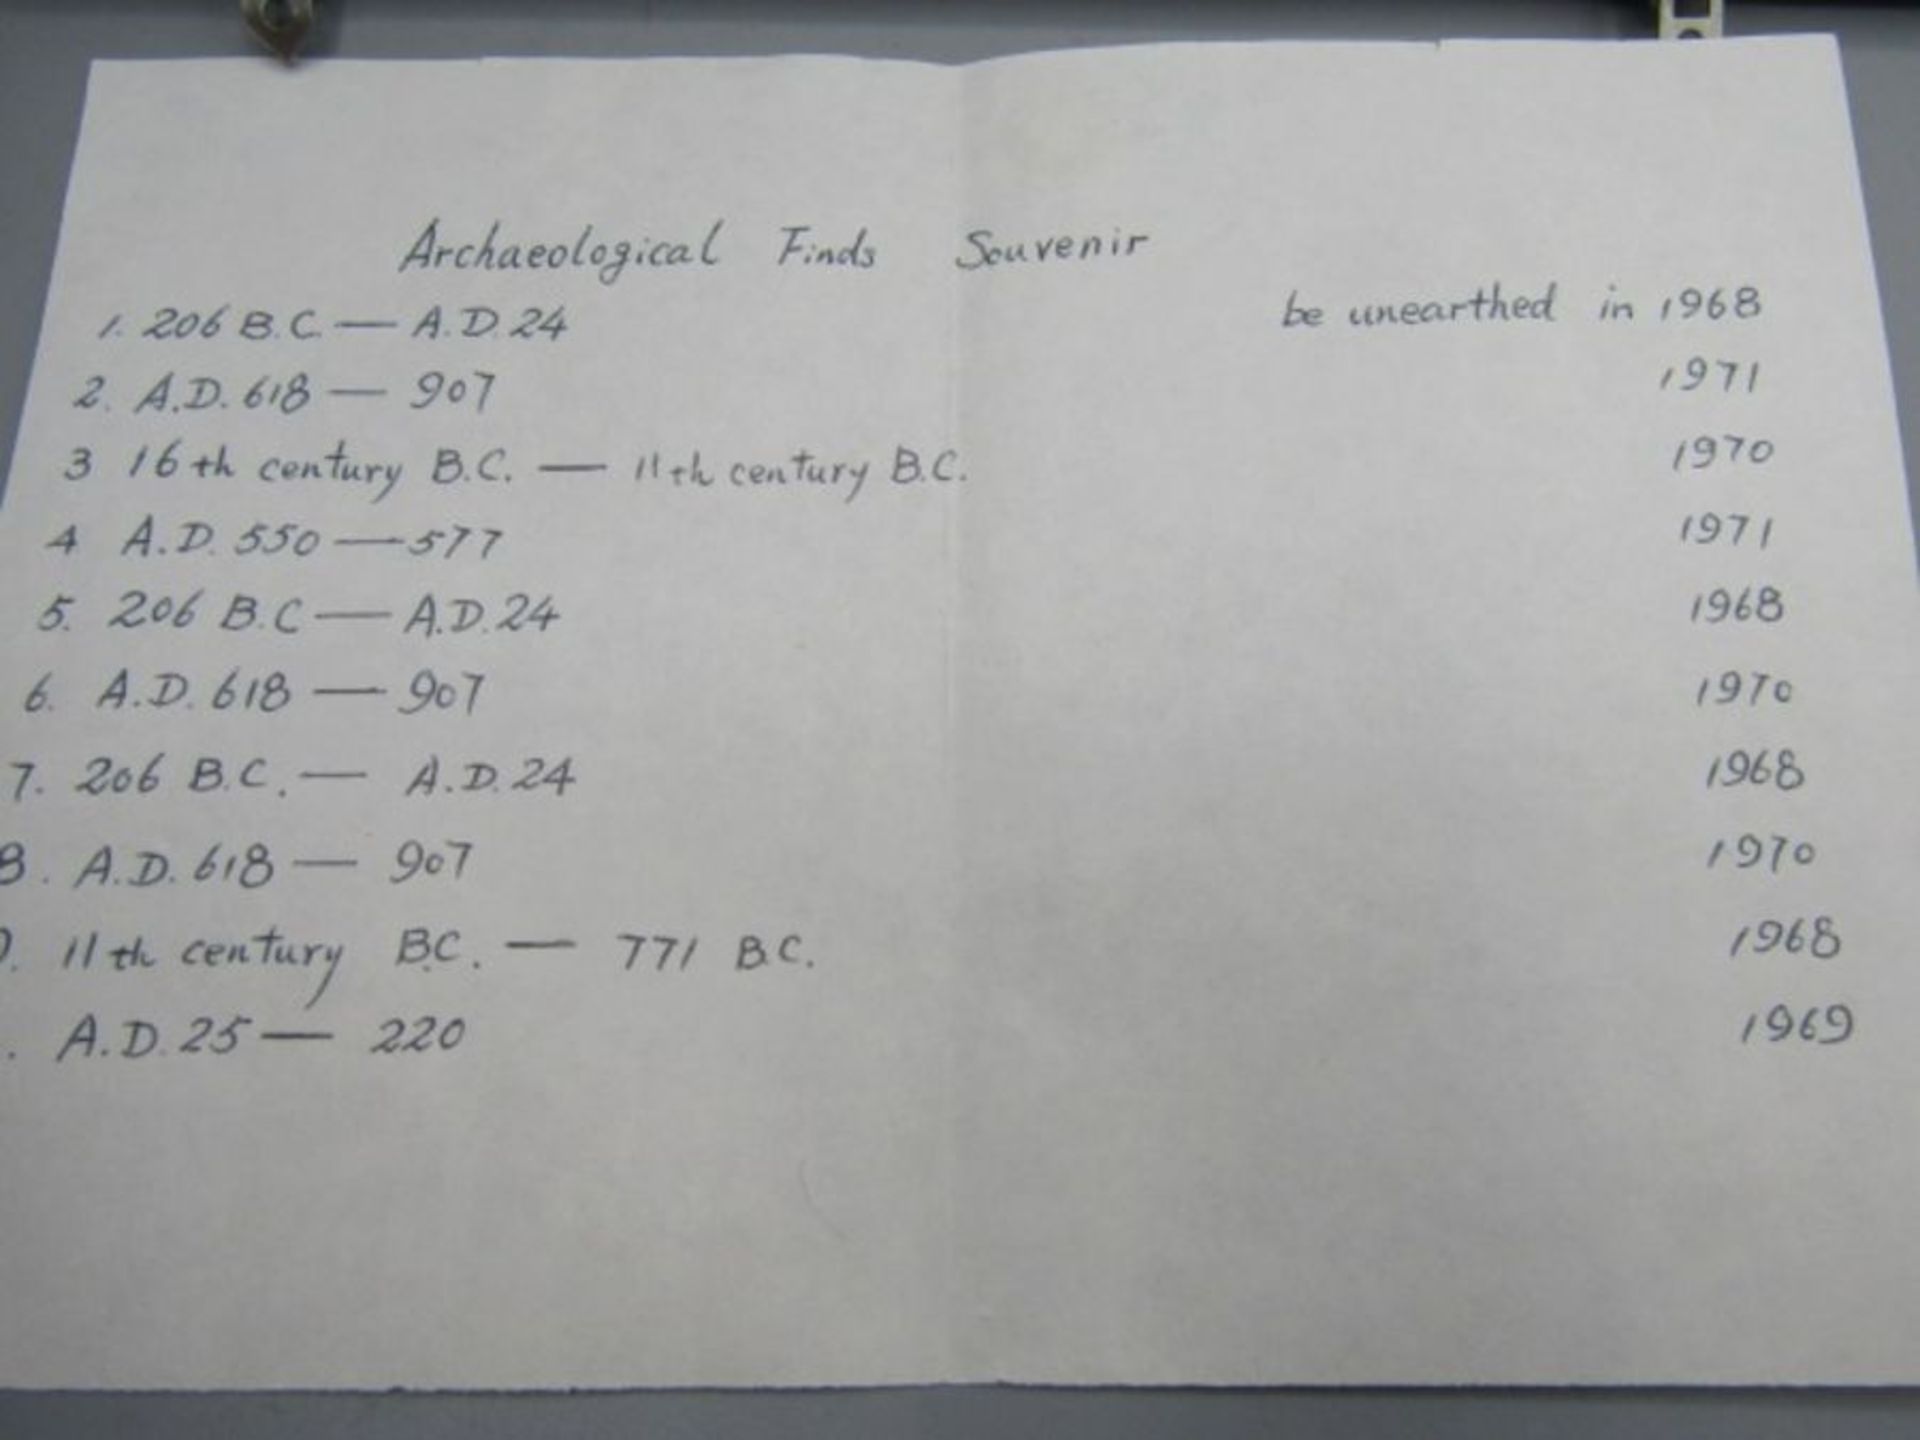 Archaeological Finds Souvenir
1. 206 B.C. — A.D. 24 be unearthed in 1968
2. A.D. 618 — 907 1971
3 16th century B.C. — 11th century B.C. 1970
4 A.D. 550 — 577 1971
5. 206 B.C — A.D. 24 1968
6. A.D. 618 — 907 1970
7. 206 B.C. — A.D. 24 1968
8. A.D. 618 — 907 1970
11th century B.C. — 771 B.C. 1968
. A.D. 25 — 220 1969